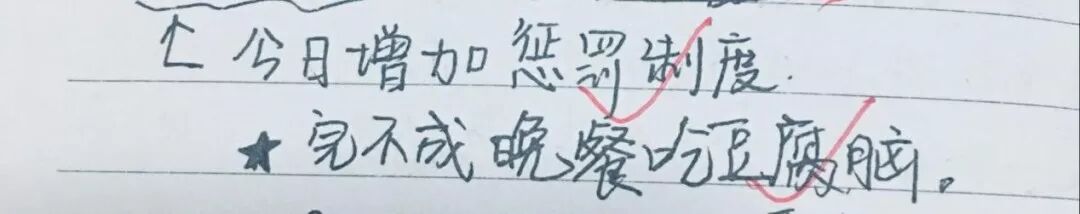 今日增加惩罚制度.
★完不成晚餐吃豆腐脑。